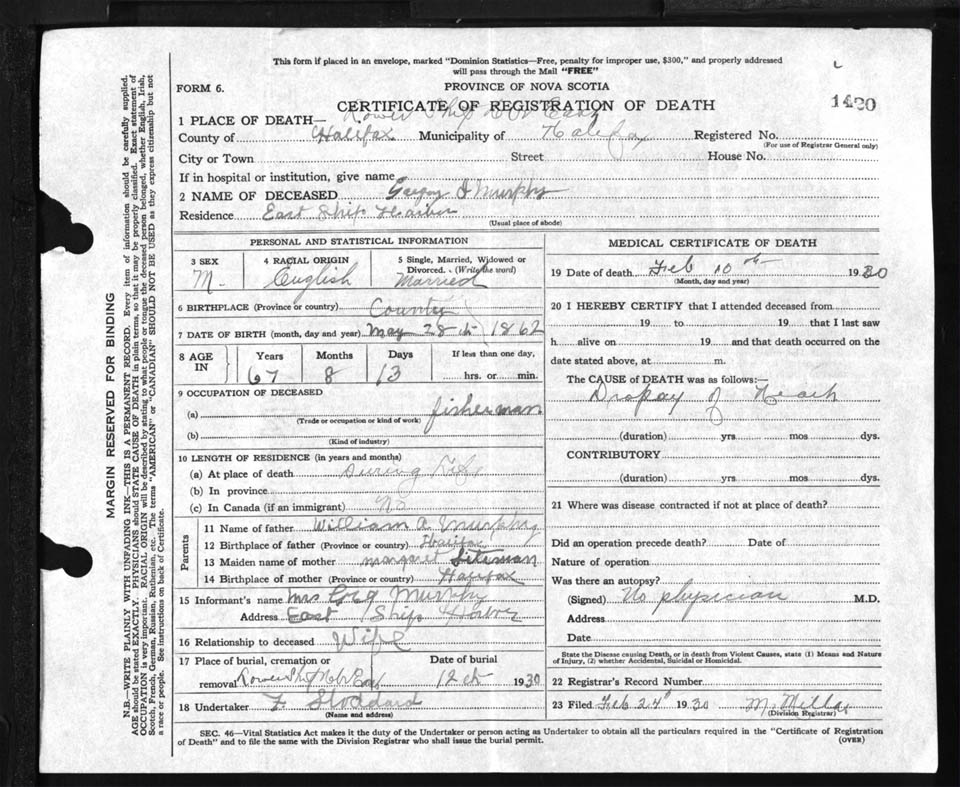 This form if placed in an envelope, marked "Dominion Statistics—Free, penalty for improper use, $300," and properly addressed
will pass through the Mail "FREE"
FORM 6.
PROVINCE OF NOVA SCOTIA
1420
CERTIFICATE OF REGISTRATION OF DEATH
1 PLACE OF DEATH— Lower Ship East
County of Halifax Municipality of Halifax Registered No.
(For use of Registrar General only)
City or Town Street House No.
If in hospital or institution, give name
2 NAME OF DECEASED Murphy
Residence East Ship Harbor
(Usual place of abode)
PERSONAL AND STATISTICAL INFORMATION
3 SEX 4 RACIAL ORIGIN 5 Single, Married, Widowed or
Divorced. (Write the word)
M. English Married
6 BIRTHPLACE (Province or country) County
7 DATE OF BIRTH (month, day and year) May 28th 1862
8 AGE IN Years Months Days If less than one day,
67 8 13 hrs. or min.
9 OCCUPATION OF DECEASED
(a) fisherman
(Trade or occupation or kind of work)
(b)
(Kind of industry)
10 LENGTH OF RESIDENCE (in years and months)
(a) At place of death During Life
(b) In province
(c) In Canada (if an immigrant) No
Parents
11 Name of father William A Murphy
12 Birthplace of father (Province or country) Halifax
13 Maiden name of mother Margaret Siteman
14 Birthplace of mother (Province or country) Halifax
15 Informant's name Mrs Geo Murphy
Address East Ship Harbor
16 Relationship to deceased Wife
17 Place of burial, cremation or Date of burial
removal Lower Ship Hbr East 12th 1930
18 Undertaker F. Stoddard
(Name and address)
MEDICAL CERTIFICATE OF DEATH
19 Date of death Feb 10th 1930
(Month, day and year)
20 I HEREBY CERTIFY that I attended deceased from
19 to 19 that I last saw
h alive on 19 and that death occurred on the
date stated above, at m.
The CAUSE OF DEATH was as follows:—
Dropsy of Heart
(duration) yrs. mos. dys.
CONTRIBUTORY
(duration) yrs. mos. dys.
21 Where was disease contracted if not at place of death?
Did an operation precede death? Date of
Nature of operation
Was there an autopsy?
(Signed) No physician M.D.
Address
Date
State the Disease causing Death, or in death from Violent Causes, state (1) Means and Nature
of Injury, (2) whether Accidental, Suicidal or Homicidal.
22 Registrar's Record Number
23 Filed Feb 24th 1930 M. Millar
(Division Registrar)
SEC. 46—Vital Statistics Act makes it the duty of the Undertaker or person acting as Undertaker to obtain all the particulars required in the "Certificate of Registration
of Death" and to file the same with the Division Registrar who shall issue the burial permit.
(OVER)
MARGIN RESERVED FOR BINDING
N.B.—WRITE PLAINLY WITH UNFADING INK—THIS IS A PERMANENT RECORD. Every item of information should be carefully supplied.
AGE should be stated EXACTLY. PHYSICIANS should STATE CAUSE OF DEATH in plain terms, so that it may be properly classified. Exact statement of
OCCUPATION is very important. RACIAL ORIGIN will be described by stating to what people or tongue the deceased person belonged, whether English, Irish,
Scotch, French, German, Russian, Ruthenian, etc. The terms "AMERICAN" or "CANADIAN" SHOULD NOT BE USED as they express citizenship but not
a race or people. See instructions on back of Certificate.